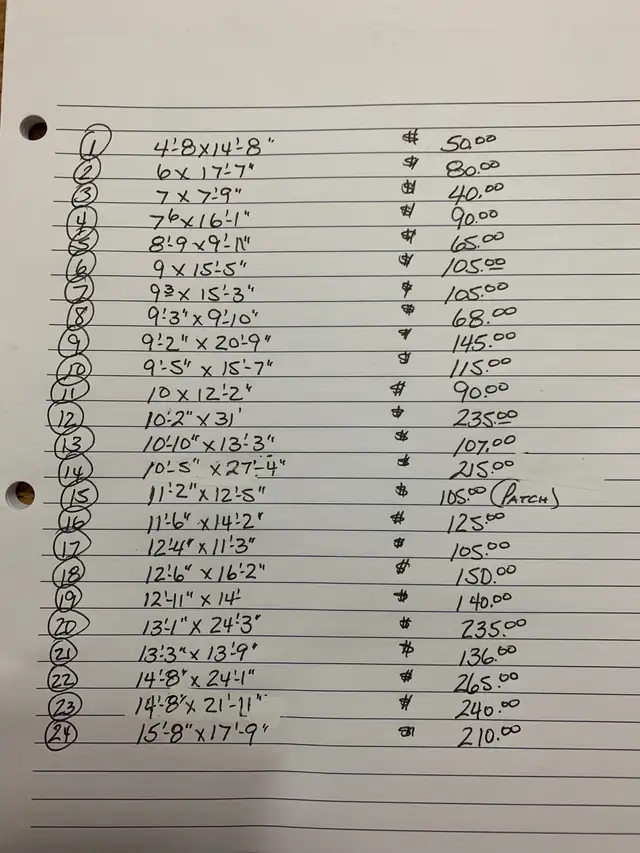 1 4'-8 x 14'-8" $ 50.00
2 6 x 17'-7" $ 80.00
3 7 x 7'-9" $ 40.00
4 7⁶ x 16'-1" $ 90.00
5 8'-9 x 9'-11" $ 65.00
6 9 x 15'-5" $ 105.00
7 9³ x 15'-3" $ 105.00
8 9'-3" x 9'-10" $ 68.00
9 9'-2" x 20'-9" $ 145.00
10 9'-5" x 15'-7" $ 115.00
11 10 x 12'-2" $ 90.00
12 10'-2" x 31' $ 235.00
13 10'-10" x 13'-3" $ 107.00
14 10'-5" x 27'-4" $ 215.00
15 11'-2" x 12'-5" $ 105.00 (PATCH)
16 11'-6" x 14'-2" $ 125.00
17 12'-4" x 11'-3" $ 105.00
18 12'-6" x 16'-2" $ 150.00
19 12'-11" x 14' $ 140.00
20 13'-1" x 24'-3" $ 235.00
21 13'-3" x 13'-9" $ 136.00
22 14'-8" x 24'-1" $ 265.00
23 14'-8" x 21'-11" $ 240.00
24 15'-8" x 17'-9" $ 210.00